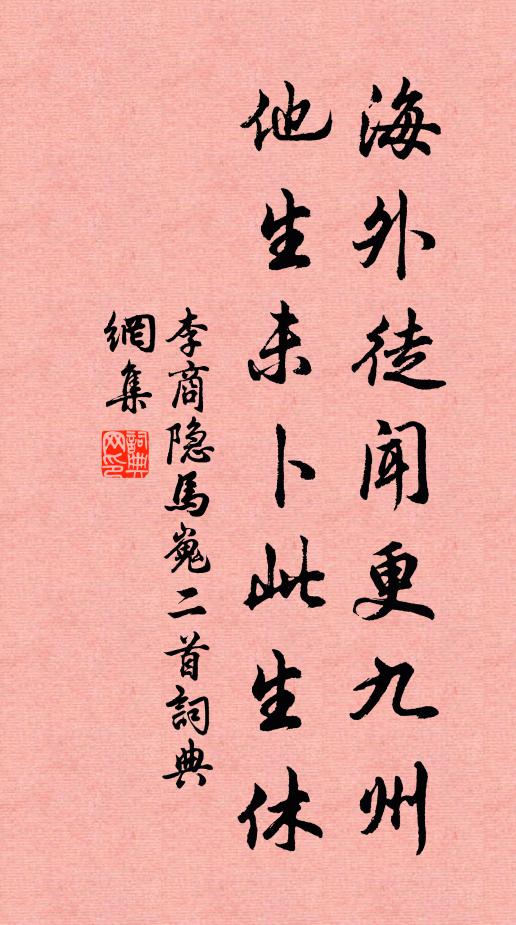 海外徒闻更九州
他生未卜此生休
李商隐馬嵬二首詞典
網集
詞典网印